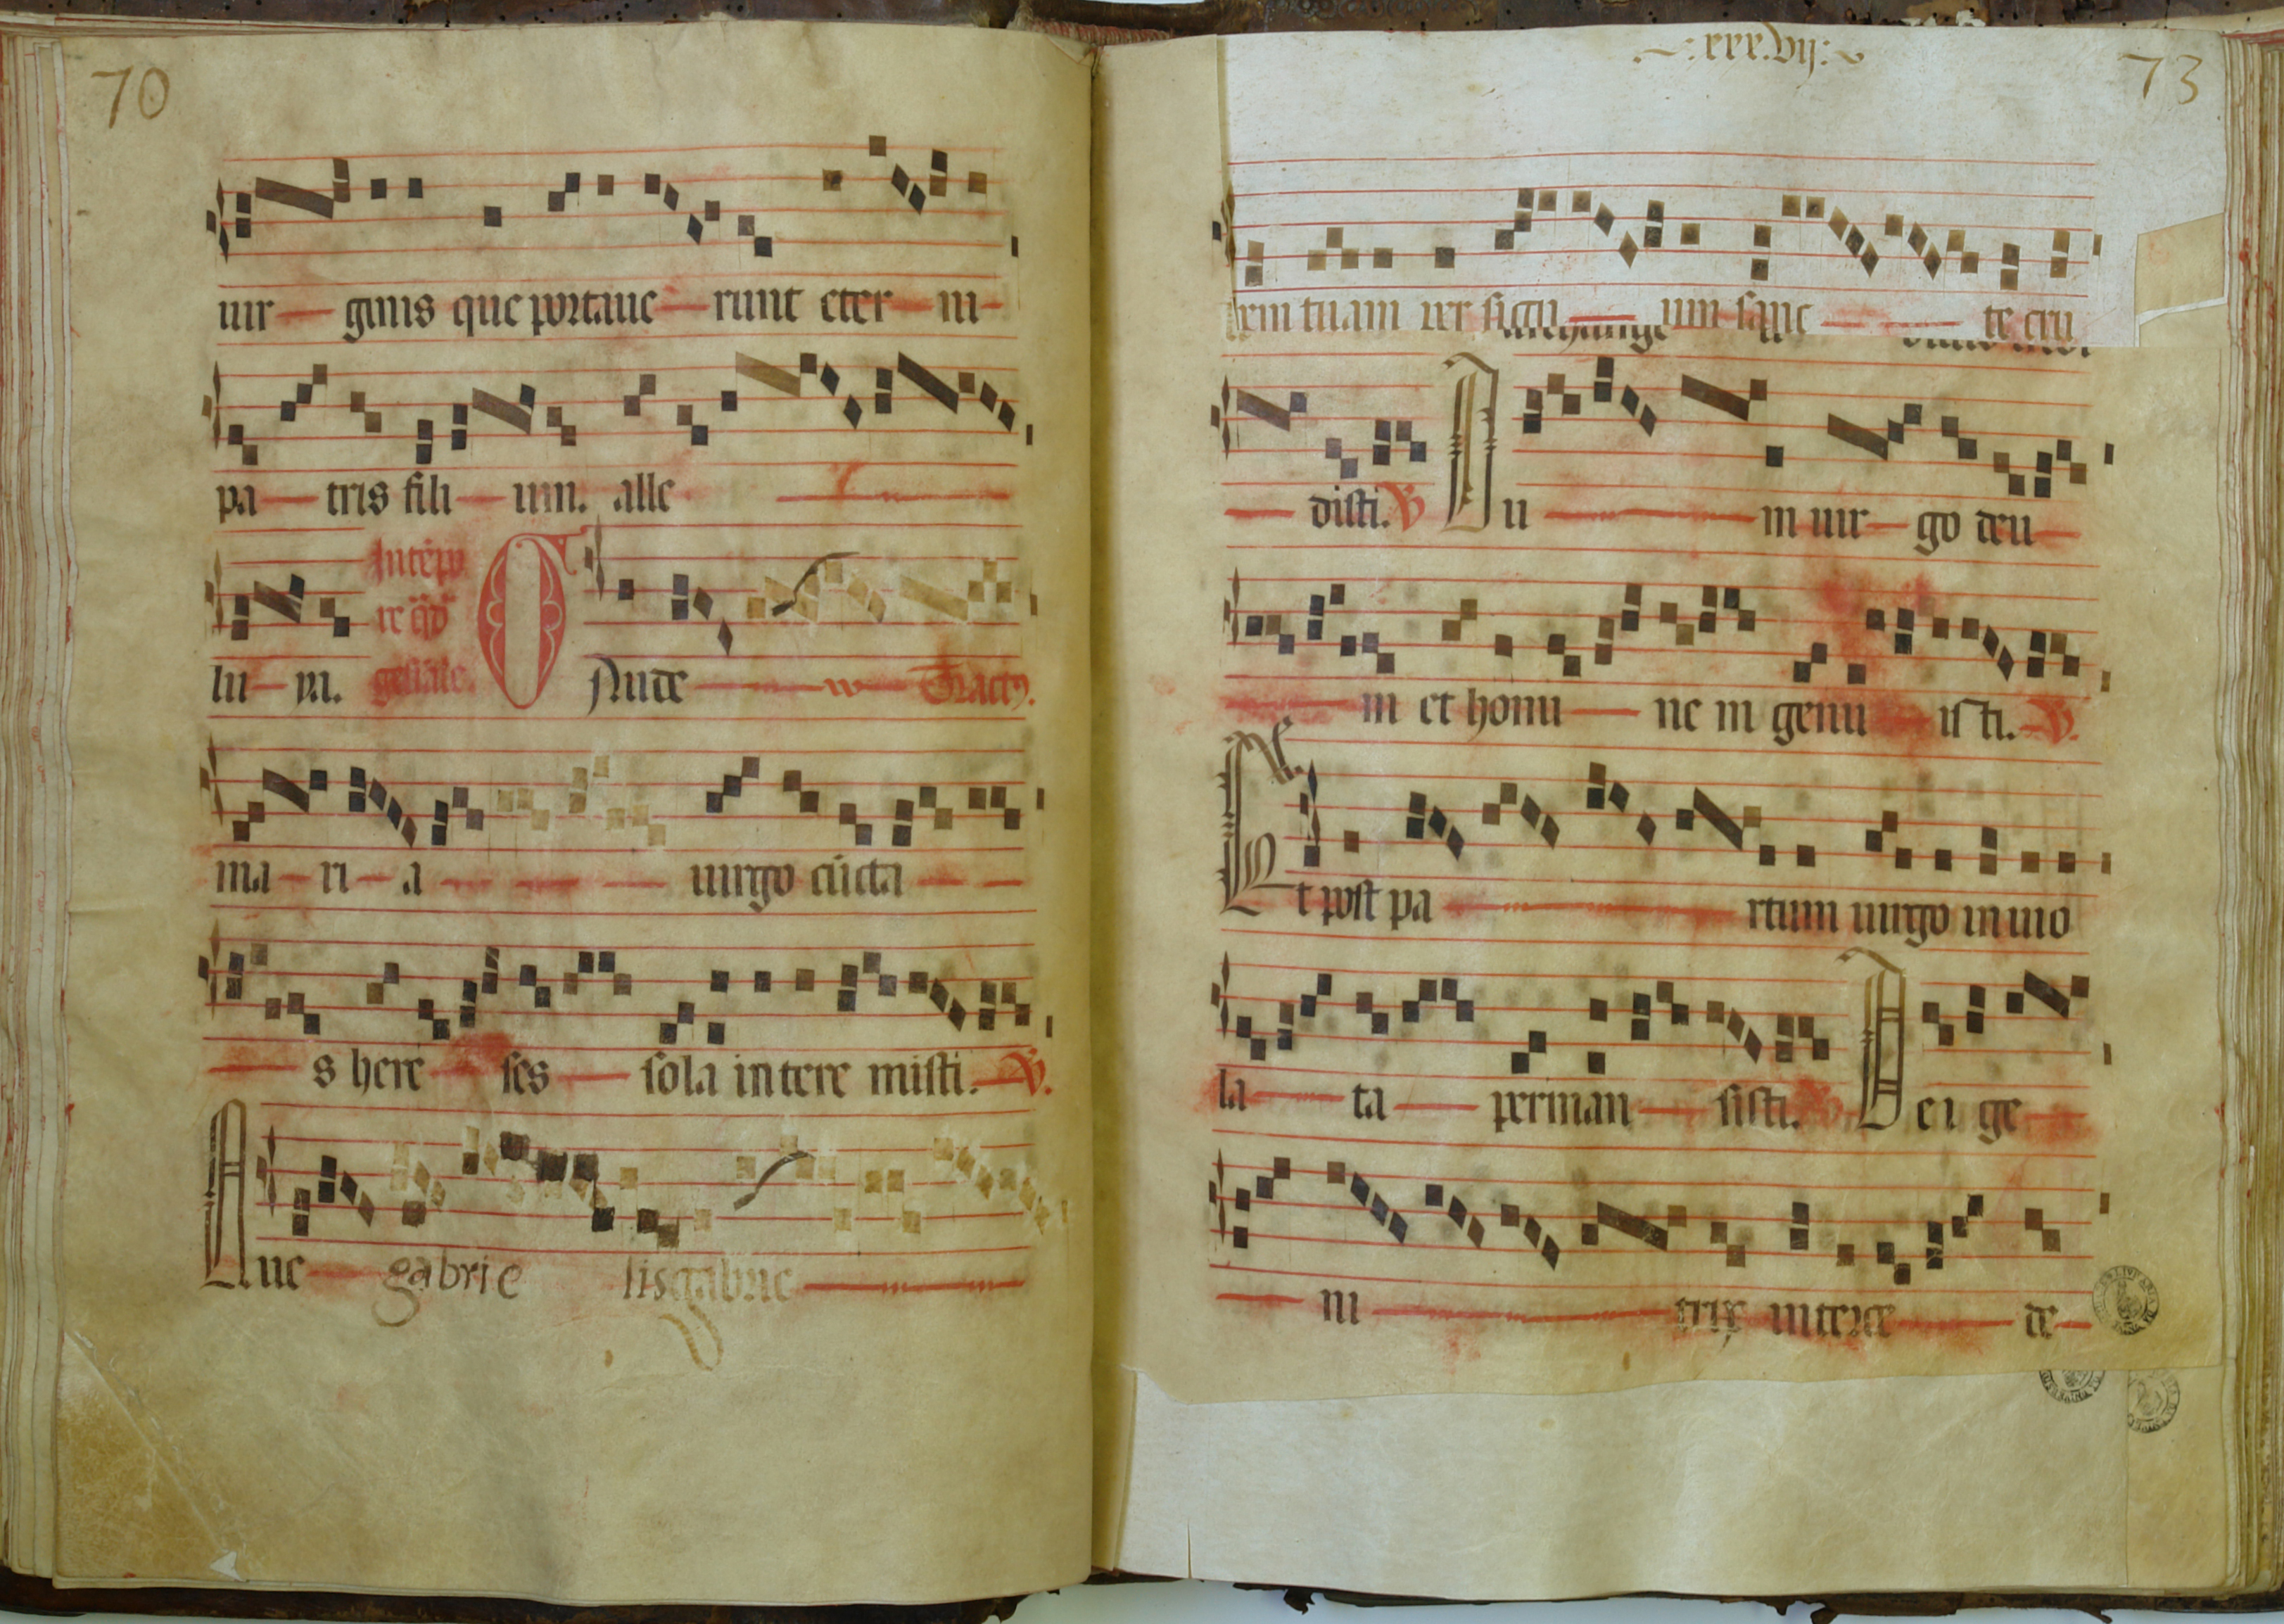 70
uir ginis que portaue runt eter ni
pa tris fili um. alle
lu ya. Intẽpo re q̃d gessiãie. Aude Tract9.
ma ri a uirgo cũcta
s here ses sola in tere misti. V.
Aue gabrie lis gabrie
.xxx.vij. 73
tem tuam per fictu um sanc te cru
disti. V Du m uir go deu
m et homi ne m genu isti. V.
Et post pa rtum uirgo in uio
la ta perman sisti. V Dei ge
ni trix interce de